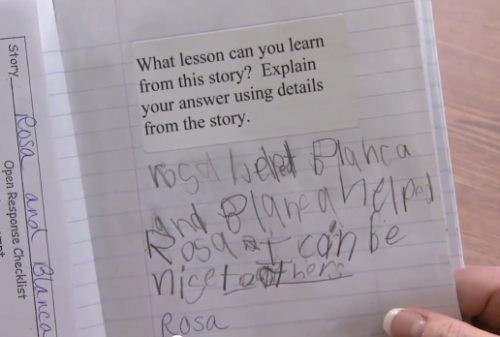 Story Rosa and Blanca
Open Response Checklist
What lesson can you learn
from this story? Explain
your answer using details
from the story.
Blanca
and Blanca helped
Rosa I can be
nice to others
Rosa